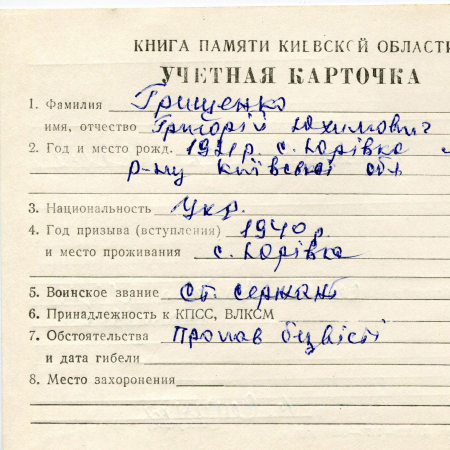 КНИГА ПАМЯТИ КИЕВСКОЙ ОБЛАСТИ
УЧЕТНАЯ КАРТОЧКА
1. Фамилия Грищенко
имя, отчество Григорій Юхимович
2. Год и место рожд. 1921р. с. Юрівка
р-ну Київської обл.
3. Национальность Укр.
4. Год призыва (вступления) 1940 р.
и место проживания с. Юрівка
5. Воинское звание ст. сержант
6. Принадлежность к КПСС, ВЛКСМ
7. Обстоятельства Пропав безвісті
и дата гибели
8. Место захоронения